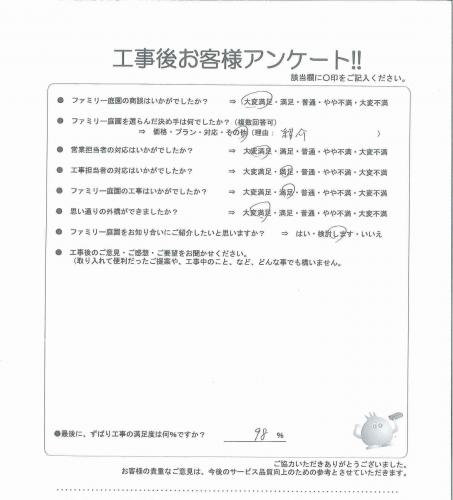 工事後お客様アンケート!!
該当欄に○印をご記入ください。
● ファミリー庭園の商談はいかがでしたか? ⇒ 大変満足・満足・普通・やや不満・大変不満
● ファミリー庭園を選らんだ決め手は何でしたか?(複数回答可)
⇒ 価格・プラン・対応・その他(理由: 紹介 )
● 営業担当者の対応はいかがでしたか? ⇒ 大変満足・満足・普通・やや不満・大変不満
● 工事担当者の対応はいかがでしたか? ⇒ 大変満足・満足・普通・やや不満・大変不満
● ファミリー庭園の工事はいかがでしたか? ⇒ 大変満足・満足・普通・やや不満・大変不満
● 思い通りの外構ができましたか? ⇒ 大変満足・満足・普通・やや不満・大変不満
● ファミリー庭園をお知り合いにご紹介したいと思いますか? ⇒ はい・検討します・いいえ
● 工事後のご意見・ご感想・ご要望をお聞かせください。
(取り入れて便利だったご提案や、工事中のこと、など、どんな事でも構いません。
●最後に、ずばり工事の満足度は何%ですか? 98 %
ご協力いただきありがとうございました。
お客様の貴重なご意見は、今後のサービス品質向上のための参考とさせていただきます。